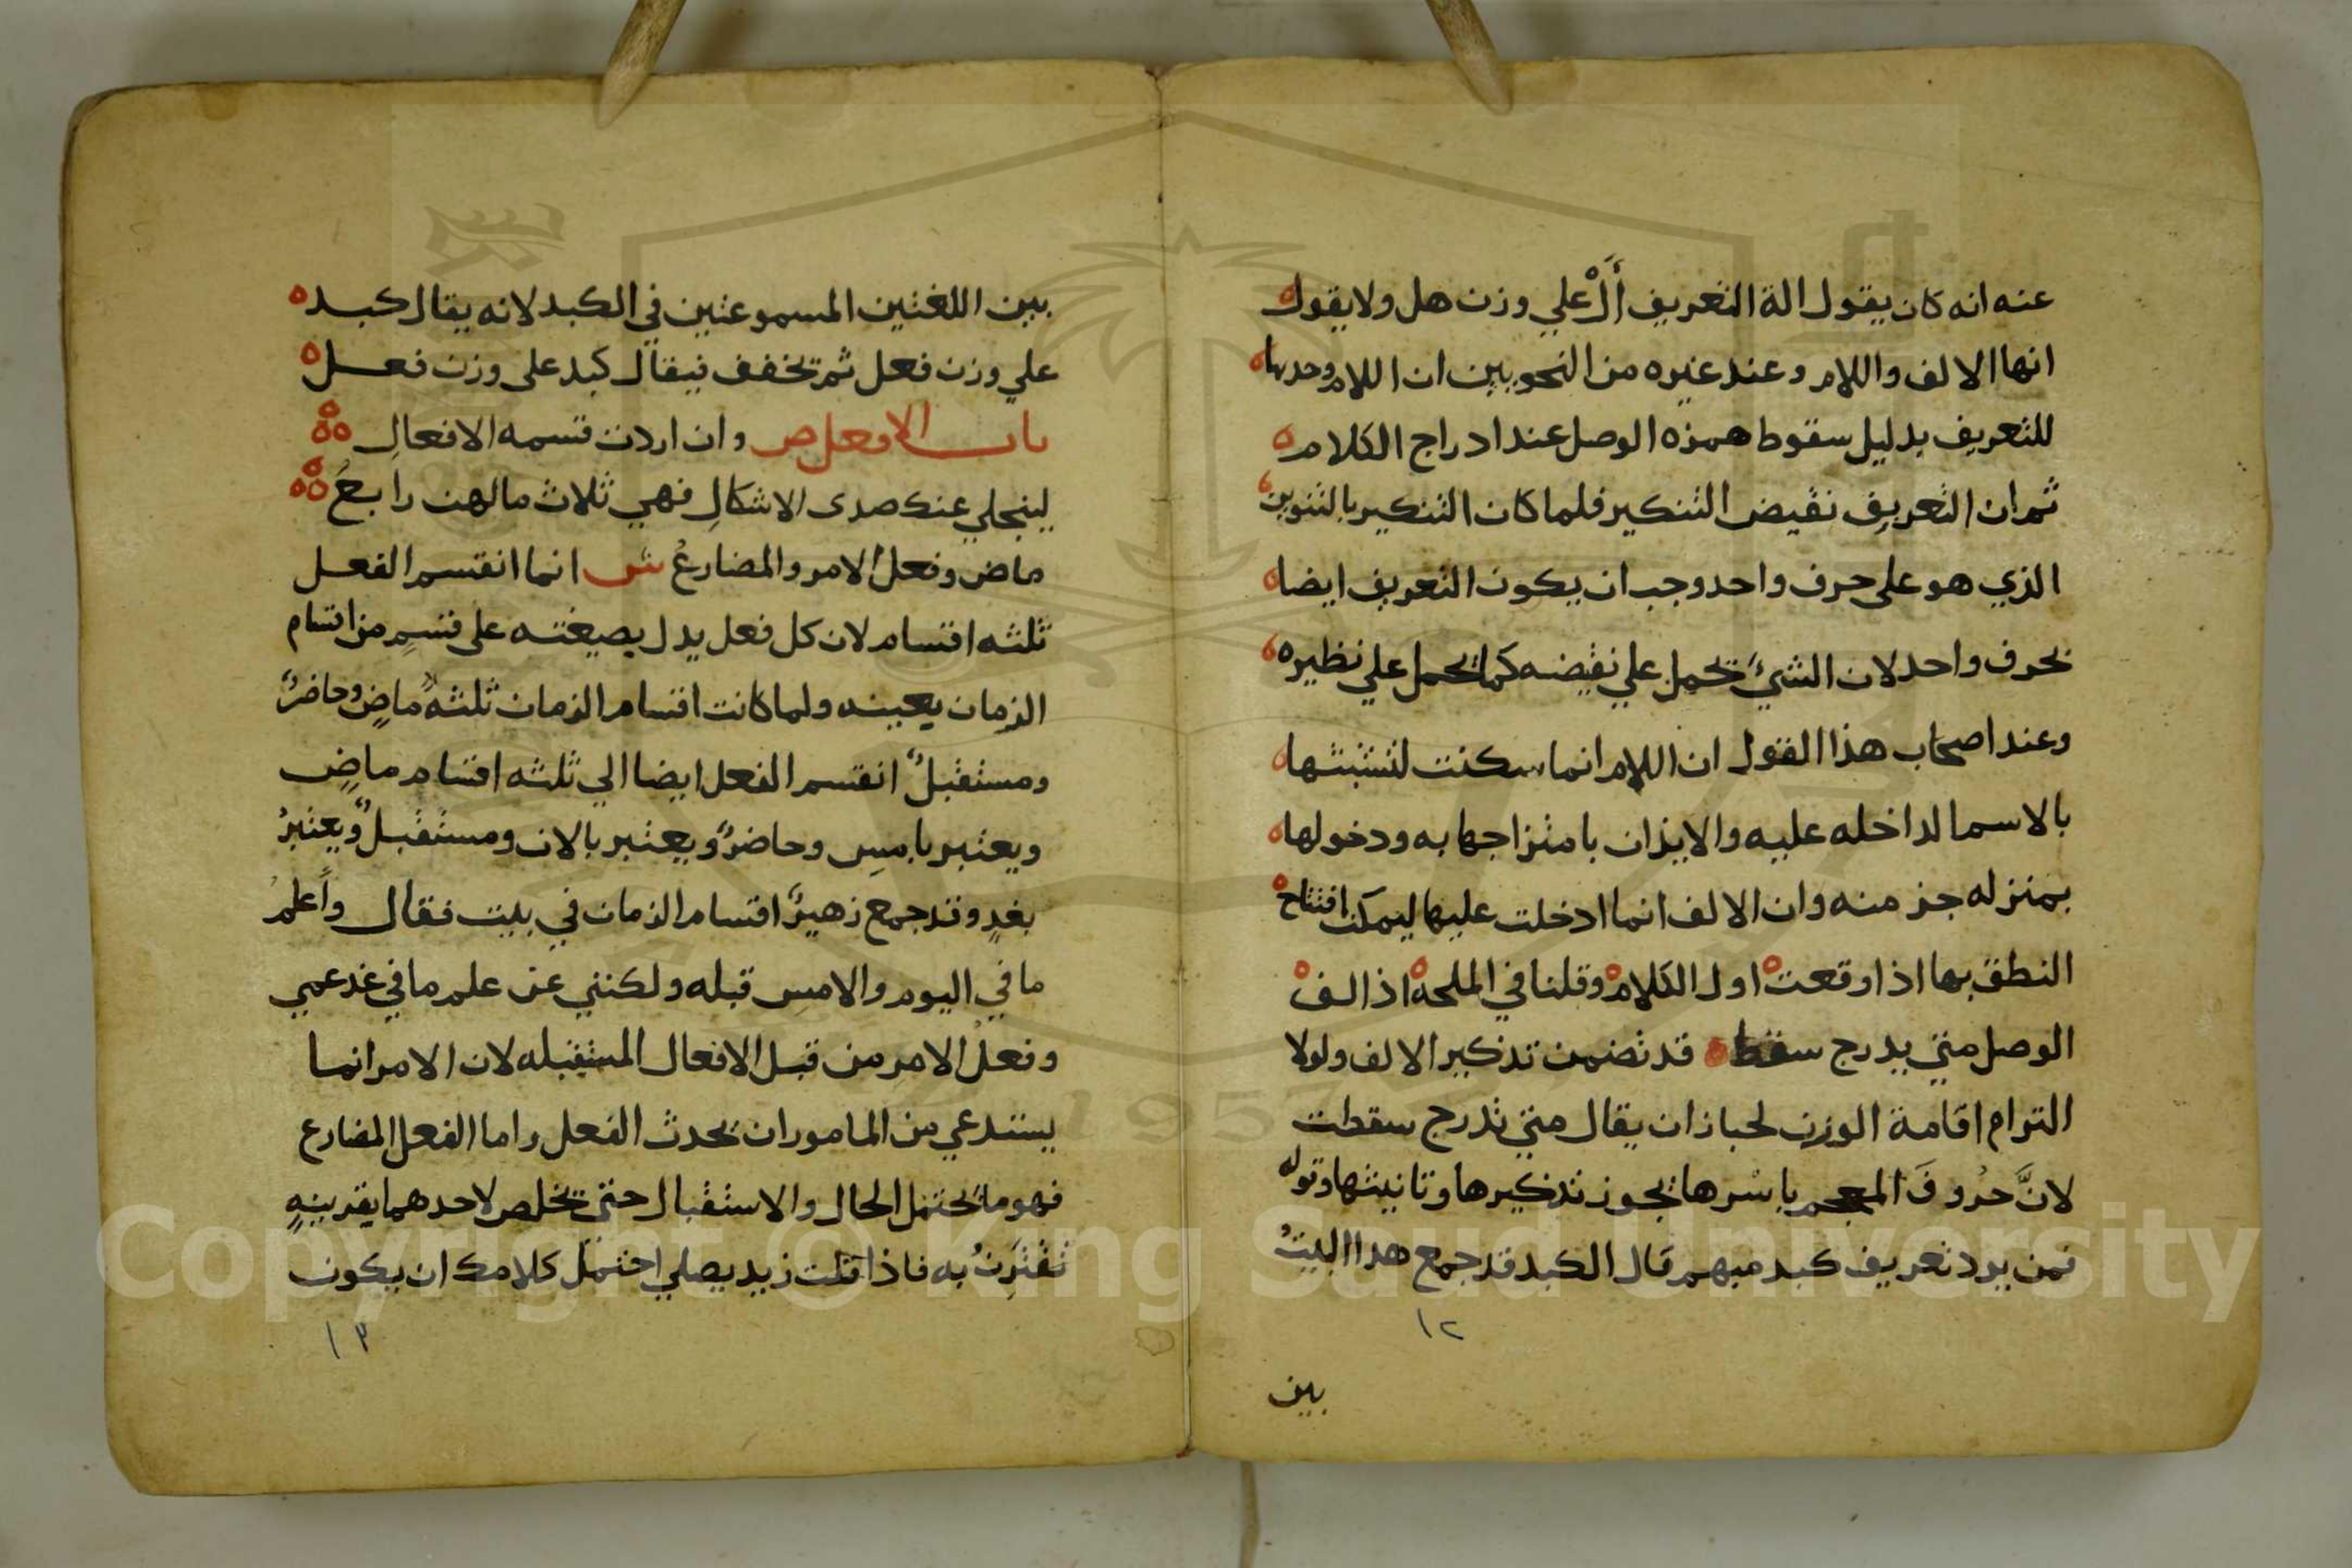 عنه انه كان يقول الة التعريف أَلْ علي وزن هل ولا يقول
انها الالف واللام وعند غيره من النحويين ان اللام وحدها
للتعريف بدليل سقوط همزه الوصل عند ادراج الكلام
ثم ان التعريف نقيض التنكير فلما كان التنكير بالتنوين
الذي هو على حرف واحد وجب ان يكون التعريف ايضا
بحرف واحد لان الشئ يحمل علي نقيضه كما يحمل علي نظيره
وعند اصحاب هذا القول ان اللام انما سكنت لتشبثها
بالاسما لداخله عليه والايذان بامتزاجها به ودخولها
بمنزله جز منه وان الالف انما ادخلت عليها ليمكن افتتاح
النطق بها اذا وقعت اول الكلام وقلنا في الملحه اذ الف
الوصل متي يدرج سقط قد تضمن تذكير الالف ولولا
التزام اقامة الوزن لجاز ان يقال متي تدرج سقطت
لانَّ حرُوفَ المعجم باسْرها يجوز تذكيرها وتانيثها وقوله
فمن يرد تعريف كبد مبهم قال الكبد قد جمع هدا البيتُ
١٢
بين
بين اللغتين المسموعتين في الكبد لانه يقال كبد
علي وزن فعل ثم تخفف فيقال كبد على وزن فعل
باب الافعل ص وان اردت قسمه الافعالِ
لينجلي عنك صدى الاشكالِ فهي ثلاث مالهن رابعُ
ماض وفعل الامر والمضارعُ ش انما انقسم الفعل
ثلثه اقسام لان كل فعل يدل بصيغته على قسمٍ من اقسام
الزمان بعينه ولما كانت اقسام الزمان ثلثهً ماضٍ وحاضرٌ
ومستقبلٌ انقسم الفعل ايضا الي ثلثه اقسام ماضٍ
ويعتبر بامسِ وحاضرٌ ويعتبر بالان ومستقبلٌ ويعتبرُ
بغدٍ وقد جمع زهيرٌ اقسام الزمان في بيت فقال واَعلمُ
ما في اليوم والامسِ قبله ولكنني عن علم ما في غد عمي
وفعل الامر من قبل الافعال المستقبله لان الامر انما
يستدعي من المامور ان يحدث الفعل واما الفعل المضارع
فهو ما يحتمل الحال والاستقبال حتي يخلص لاحدهما بقرينهٍ
تَقْتَرِنُ به فاذا قلت زيد يصلي احتمل كلامك ان يكون
١٣
Copyright © King Saud University
1957